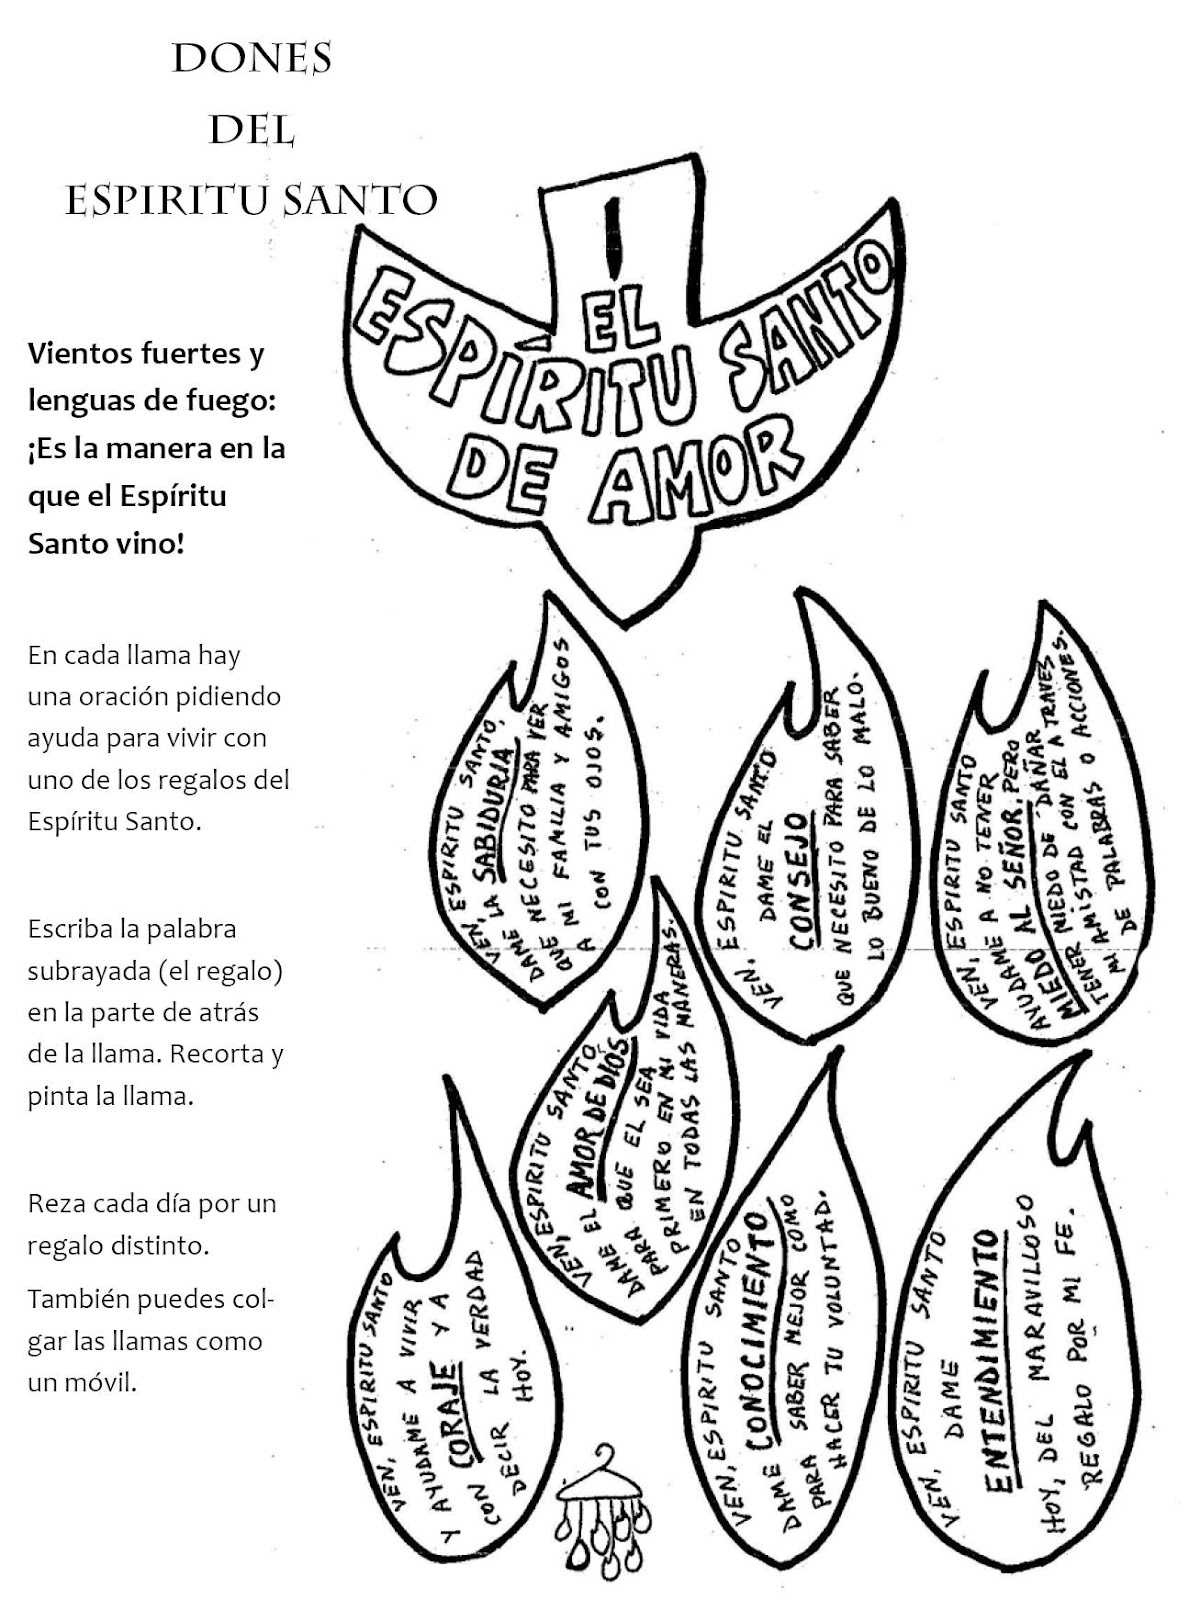 DONES
DEL
ESPIRITU SANTO
Vientos fuertes y
lenguas de fuego:
¡Es la manera en la
que el Espíritu
Santo vino!
En cada llama hay
una oración pidiendo
ayuda para vivir con
uno de los regalos del
Espíritu Santo.
Escriba la palabra
subrayada (el regalo)
en la parte de atrás
de la llama. Recorta y
pinta la llama.
Reza cada día por un
regalo distinto.
También puedes col-
gar las llamas como
un móvil.
EL
ESPÍRITU SANTO
DE AMOR
VEN, ESPIRITU SANTO,
DAME LA SABIDURIA
QUE NECESITO PARA VER
A MI FAMILIA Y AMIGOS
CON TUS OJOS.
VEN, ESPIRITU SANTO
DAME EL
CONSEJO
QUE NECESITO PARA SABER
LO BUENO DE LO MALO.
VEN, ESPIRITU SANTO
AYUDAME A NO TENER
MIEDO AL SEÑOR, PERO
TENER MIEDO DE DAÑAR
MI AMISTAD CON EL A TRAVES
DE PALABRAS O ACCIONES.
VEN, ESPIRITU SANTO
DAME EL AMOR DE DIOS
PARA QUE EL SEA
PRIMERO EN MI VIDA
EN TODAS LAS MANERAS.
VEN, ESPIRITU SANTO
Y AYUDAME A VIVIR
CON CORAJE Y A
DECIR LA VERDAD
HOY.
VEN, ESPIRITU SANTO
DAME CONOCIMIENTO
PARA SABER MEJOR COMO
HACER TU VOLUNTAD.
VEN, ESPIRITU SANTO
DAME
ENTENDIMIENTO
HOY, DEL MARAVILLOSO
REGALO POR MI FE.